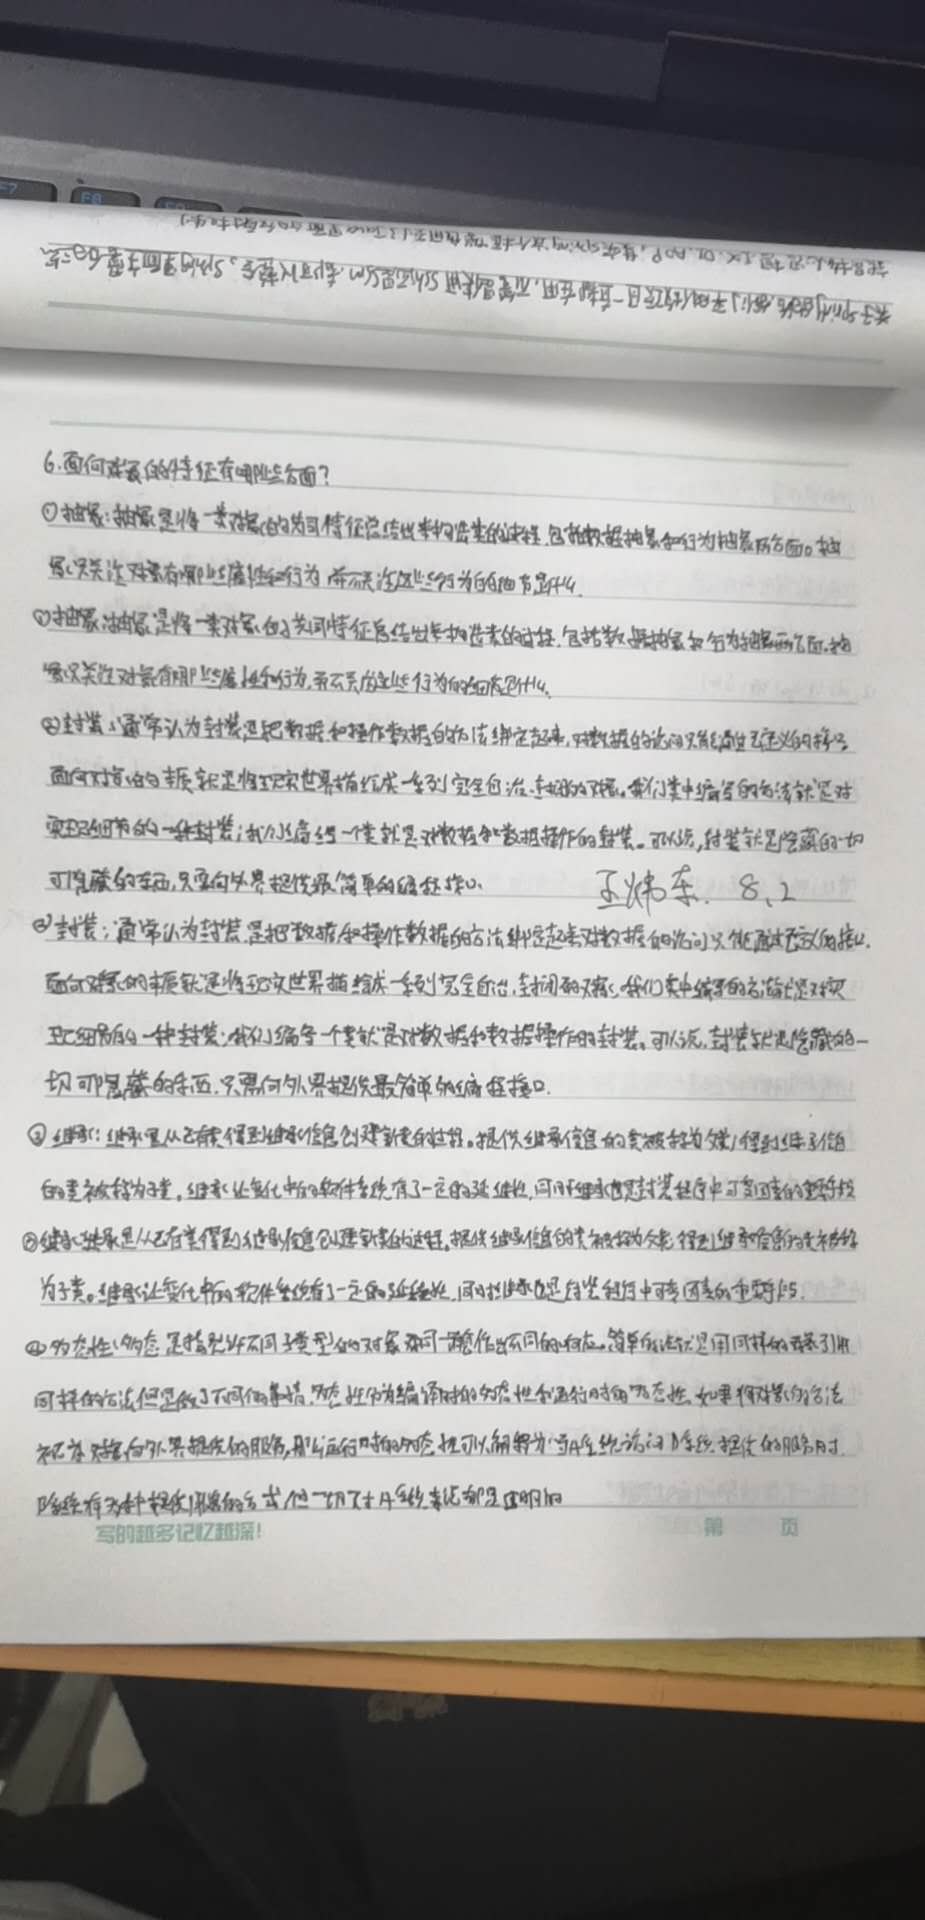 F7
F8
6.面向对象的特征有哪些方面?
①抽象:抽象是将一类对象的共同特征总结出来构造类的过程,包括数据抽象和行为抽象两方面。抽
象只关注对象有哪些属性和行为,并不关注这些行为的细节是什么.
①抽象:抽象是将一类对象的共同特征总结出来构造类的过程,包括数据抽象和行为抽象两方面.抽
象只关注对象有哪些属性和行为,并不关注这些行为的细节是什么.
②封装:通常认为封装是把数据和操作数据的方法绑定起来,对数据的访问只能通过已定义的接口
面向对象的本质就是将现实世界描绘成一系列完全自治、封闭的对象。我们类中编写的方法就是对
实现细节的一种封装;我们编写一个类就是对数据和数据操作的封装。可以说,封装就是隐藏的一切
可隐藏的东西,只要向外界提供最简单的编程接口. 王炜东. 8.2
②封装;通常认为封装是把数据和操作数据的方法绑定起来对数据的访问只能通过已定义的接口.
面向对象的本质就是将现实世界描绘成一系列完全自治,封闭的对象.我们类中编写的方法就是对实
现细节的一种封装;我们编写一个类就是对数据和数据操作的封装。可以说,封装就是隐藏的一
切可隐藏的东西.只需向外界提供最简单的编程接口.
③继承:继承是从已有类得到继承信息创建新类的过程。提供继承信息的类被称为父类;得到继承信息
的类被称为子类。继承让变化中的软件系统有了一定的延续性,同时继承也是封装程序中可变因素的重要手段
③继承:继承是从已有类得到继承信息创建新类的过程.提供继承信息的类被称为父类得到继承信息的类被称
为子类。继承让变化中的软件系统有了一定的延续性.同时继承也是封装程序中可变因素的重要手段.
④多态性:多态是指允许不同子类型的对象对同一消息作出不同的响应。简单的说就是用同样的对象引用
同样的方法但是做了不同的事情.多态性分为编译时的多态性和运行时的多态性.如果将对象的方法
视为对象向外界提供的服务,那么运行时的多态性可以解释为:当A系统访问B系统提供的服务时.
B系统有多种提供服务的方式但一切对A系统来说都是透明的
写的越多记忆越深!
第 页